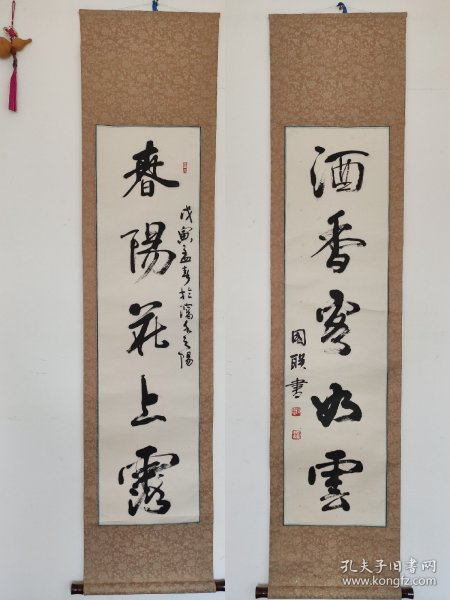 春陽花上露
戊寅孟春於濱水之陽
酒香客如雲
國联書
孔夫子旧书网
www.kongfz.com